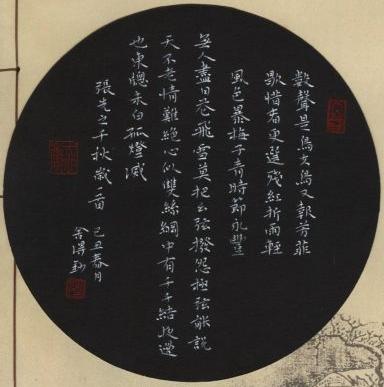 數聲鶗鴂又報芳菲
歇惜春更選殘紅折雨輕
風色暴梅子青時節永豐
無人盡日花飛雪莫把幺弦撥怨極弦能說
天不老情難絕心似雙絲網中有千千結夜過
也東牕未白孤燈滅
張先之千秋歲
己丑春月
舍得